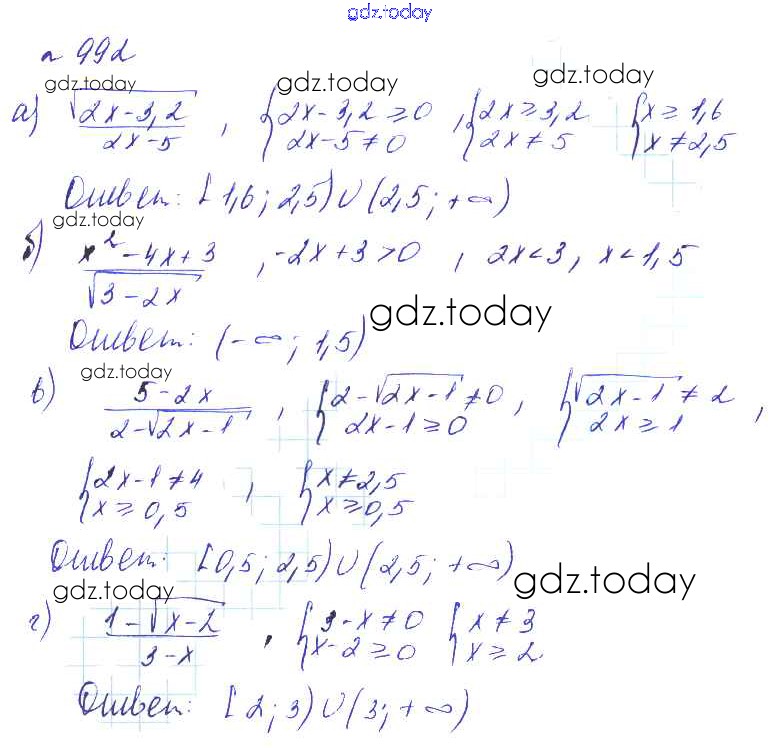 gdz.today
n 992
gdz.today gdz.today gdz.today
а) √(2x-3,2) / (2x-5) , { 2x-3,2 ≥ 0 ; 2x-5 ≠ 0 , { 2x ≥ 3,2 ; 2x ≠ 5 { x ≥ 1,6 ; x ≠ 2,5
Ответ: [1,6; 2,5) ∪ (2,5; +∞)
gdz.today
б) (x² - 4x + 3) / √(3-2x) , -2x+3 > 0 , 2x < 3, x < 1,5
Ответ: (-∞; 1,5)
gdz.today
gdz.today
в) (5-2x) / (2-√(2x-1)) , { 2-√(2x-1) ≠ 0 ; 2x-1 ≥ 0 , { √(2x-1) ≠ 2 ; 2x ≥ 1 ,
{ 2x-1 ≠ 4 ; x ≥ 0,5 , { x ≠ 2,5 ; x ≥ 0,5
Ответ: [0,5; 2,5) ∪ (2,5; +∞)
gdz.today gdz.today
г) (1-√(x-2)) / (3-x) , { 3-x ≠ 0 ; x-2 ≥ 0 { x ≠ 3 ; x ≥ 2
Ответ: [2; 3) ∪ (3; +∞)